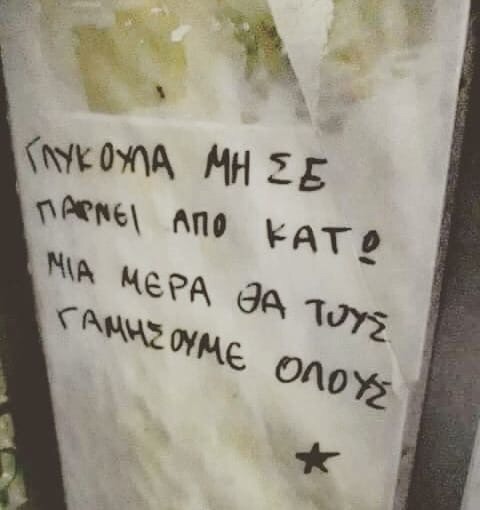 ΓΛΥΚΟΥΛΑ ΜΗ ΣΕ
ΠΑΡΝΕΙ ΑΠΟ ΚΑΤΩ
ΜΙΑ ΜΕΡΑ ΘΑ ΤΟΥΣ
ΓΑΜΗΣΟΥΜΕ ΟΛΟΥΣ